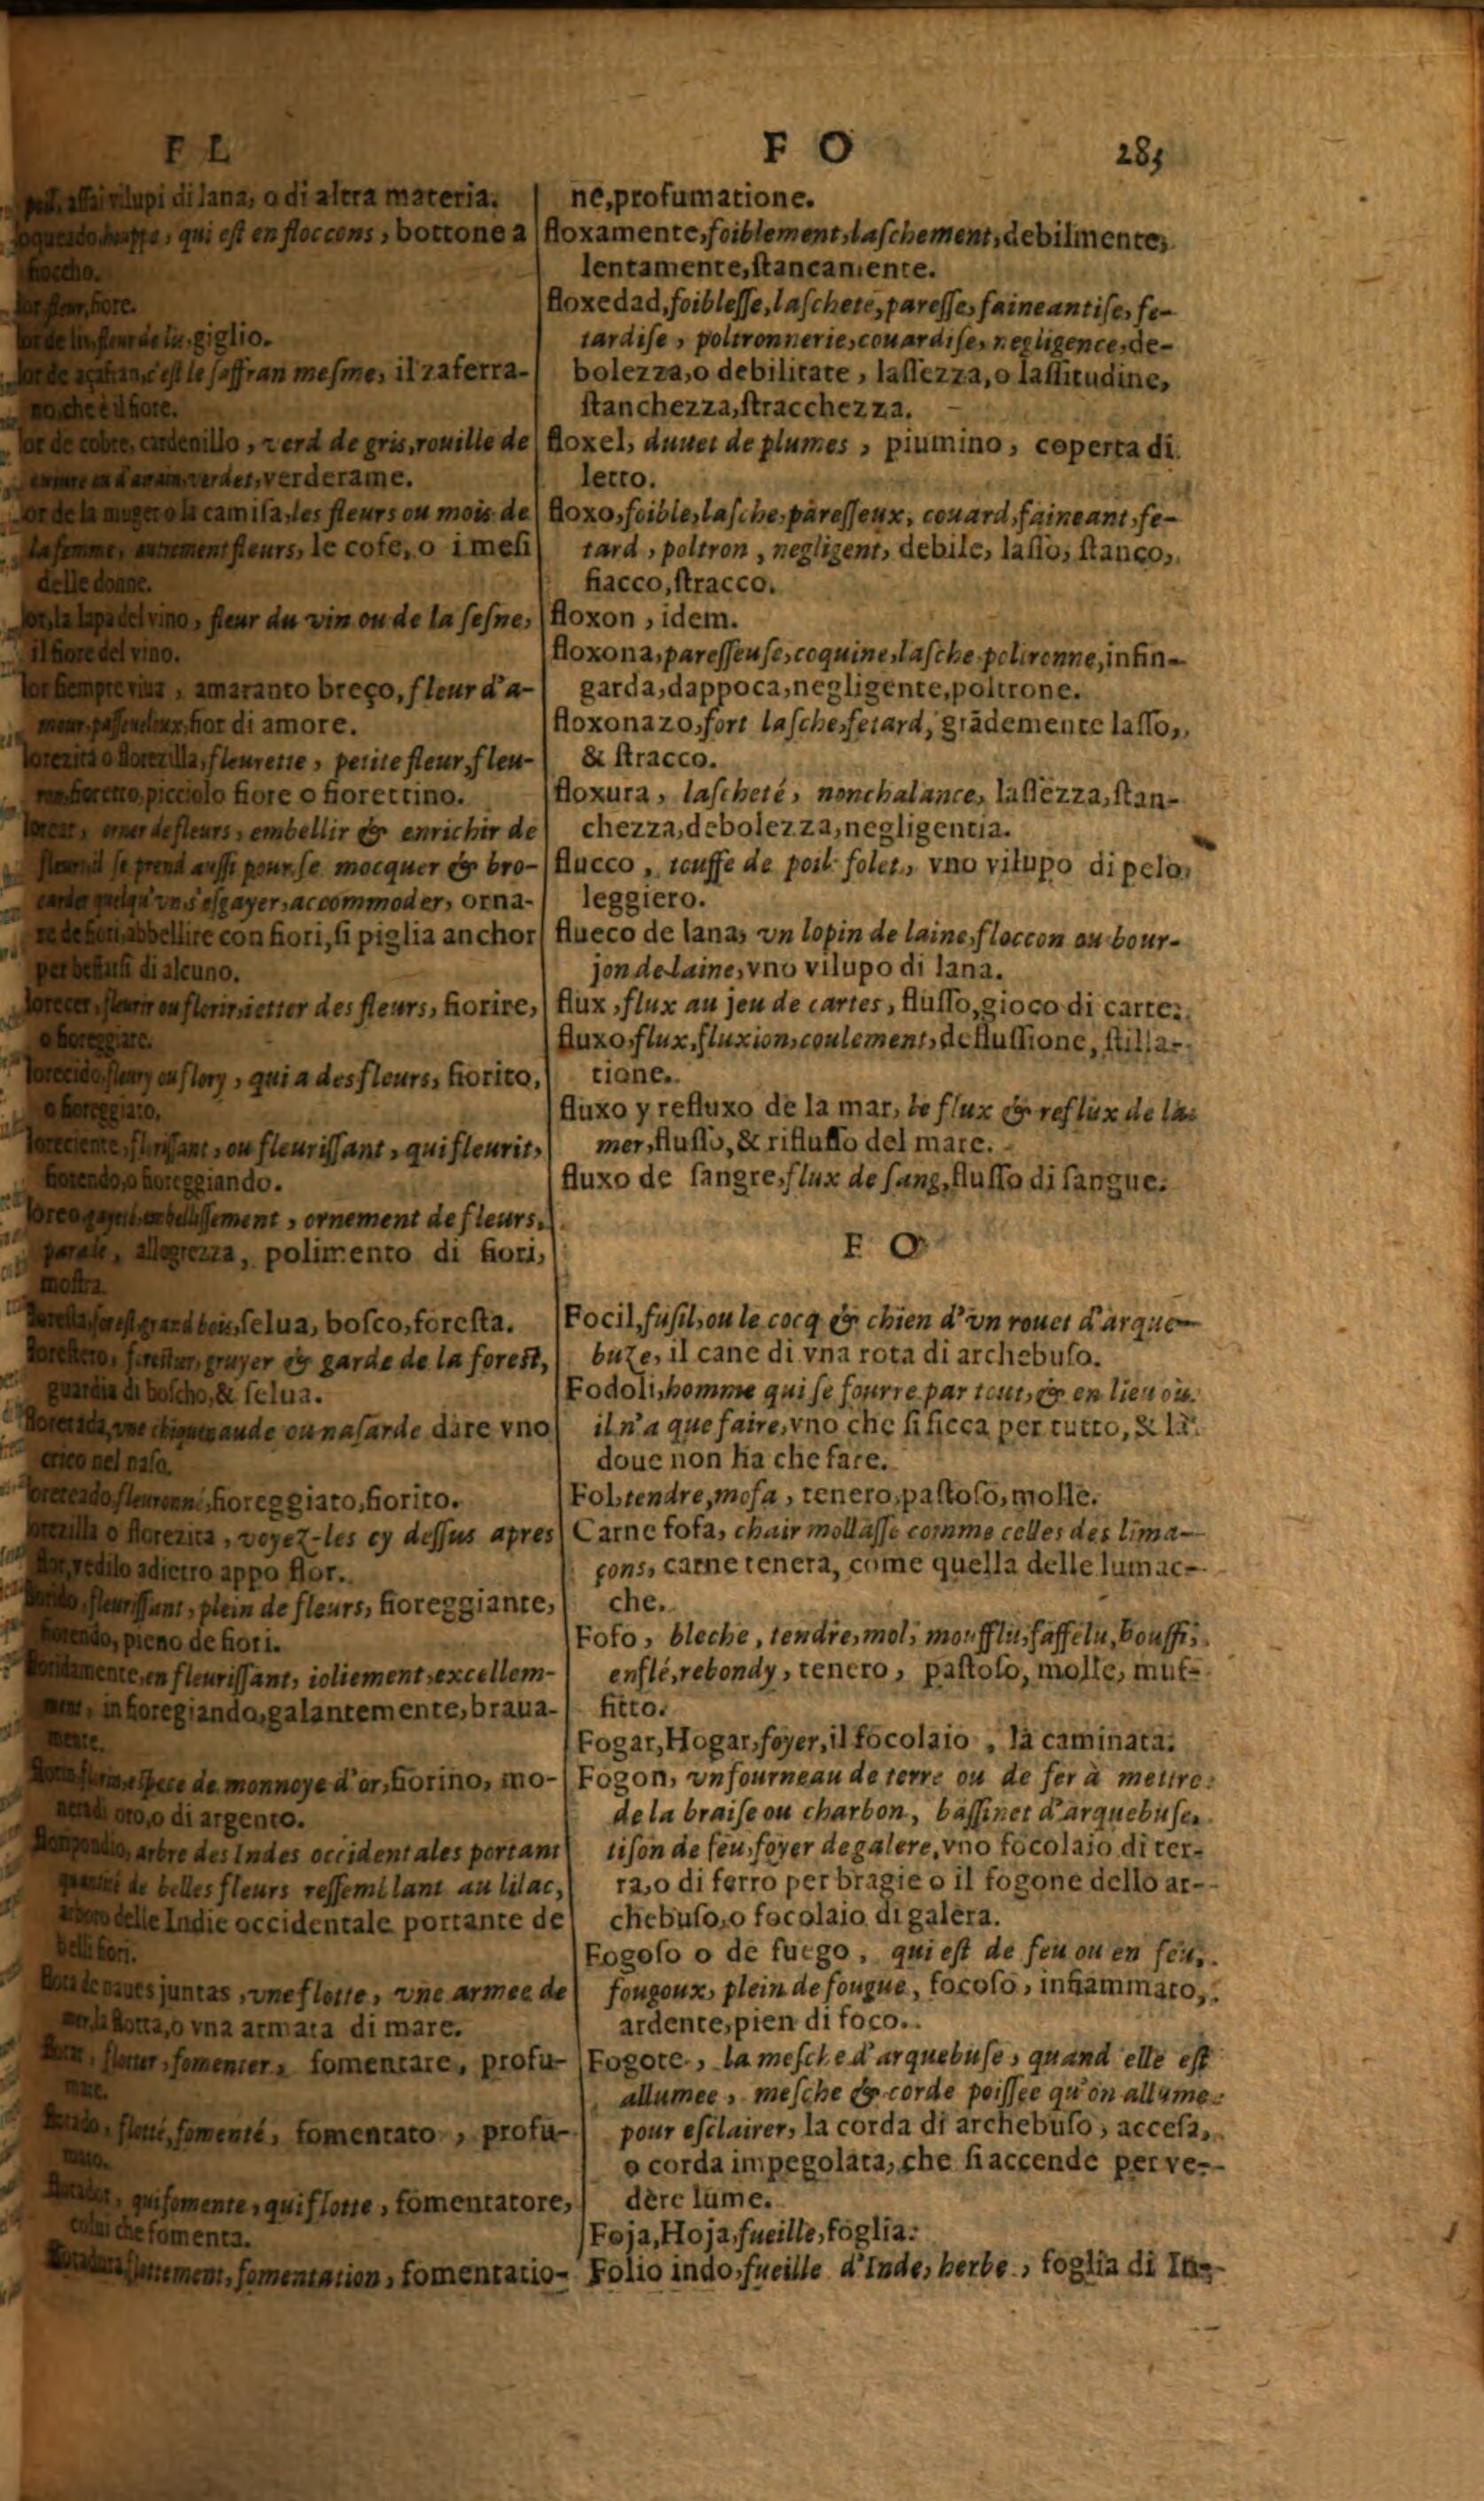 F L
F O 285
di lana, o di altra materia.
qui eſt en floccons, bottone a
fioccho.
fiore.
giglio.
c'eſt le ſaffran meſme, il zaferra-
no, che è il fiore.
lor de cobre, cardenillo, verd de gris, rouille de
verdet, verderame.
de la muger o la camiſa, les fleurs ou mois de
la femme, autrement fleurs, le coſe, o i meſi
delle donne.
fleur du vin ou de la ſeſne,
il fiore del vino.
amaranto breço, fleur d'a-
fior di amore.
florezilla, fleurette, petite fleur, fleu-
picciolo fiore o fiorettino.
orner de fleurs, embellir & enrichir de
il ſe prend auſſi pour ſe mocquer & bro-
s'eſgayer, accommoder, orna-
abbellire con fiori, ſi piglia anchor
di alcuno.
fleurir ou florir, ietter des fleurs, fiorire,
o fioreggiare.
fleury ou flory, qui a des fleurs, fiorito,
o fioreggiato.
ou fleuriſſant, qui fleurit,
fiorendo, o fioreggiando.
ornement de fleurs,
allegrezza, polimento di fiori,
moſtra.
grand bois, ſelua, boſco, foreſta.
gruyer & garde de la foreſt,
guardia di boſcho, & ſelua.
ou naſarde dare vno
nel naſo.
fioreggiato, fiorito.
o florezita, voyez-les cy deſſus apres
vedilo adietro appo flor.
fleuriſſant, plein de fleurs, fioreggiante,
fiorendo, pieno de fiori.
en fleuriſſant, ioliement, excellem-
in fioregiando, galantemente, braua-
mente.
de monnoye d'or, fiorino, mo-
oro, o di argento.
arbre des Indes occidentales portant
de belles fleurs reſſemblant au lilac,
delle Indie occidentale portante de
belli fiori.
juntas, vne flotte, vne armee de
o vna armata di mare.
fomenter, fomentare, profu-
fomenté, fomentato, profu-
qui fomente, qui flotte, fomentatore,
che fomenta.
fomentation, fomentatio-
ne, profumatione.
floxamente, foiblement, laſchement, debilmente,
lentamente, ſtancamente.
floxedad, foibleſſe, laſcheté, pareſſe, faineantiſe, fe-
tardiſe, poltronnerie, couardiſe, negligence, de-
bolezza, o debilitate, laſſezza, o laſſitudine,
ſtanchezza, ſtracchezza.
floxel, duuet de plumes, piumino, coperta di
letto.
floxo, foible, laſche, pareſſeux, couard, faineant, fe-
tard, poltron, negligent, debile, laſſo, ſtanco,
fiacco, ſtracco.
floxon, idem.
floxona, pareſſeuſe, coquine, laſche poltronne, infin-
garda, dappoca, negligente, poltrone.
floxonazo, fort laſche, fetard, grādemente laſſo,
& ſtracco.
floxura, laſcheté, nonchalance, laſſezza, ſtan-
chezza, debolezza, negligentia.
flucco, touffe de poil folet, vno vilupo di pelo
leggiero.
flueco de lana, vn lopin de laine, floccon ou bour-
jon de laine, vno vilupo di lana.
flux, flux au jeu de cartes, fluſſo, gioco di carte.
fluxo, flux, fluxion, coulement, defluſſione, ſtilla-
tione.
fluxo y refluxo de la mar, le flux & reflux de la
mer, fluſſo, & rifluſſo del mare.
fluxo de ſangre, flux de ſang, fluſſo di ſangue.
F O
Focil, fuſil, ou le cocq & chien d'vn rouet d'arque-
buze, il cane di vna rota di archebuſo.
Fodoli, homme qui ſe fourre par tout, & en lieu où
il n'a que faire, vno che ſi ficca per tutto, & là
doue non ha che fare.
Fof, tendre, mofa, tenero, paſtoſo, molle.
Carne fofa, chair mollaſſe comme celles des lima-
çons, carne tenera, come quella delle lumac-
che.
Fofo, bleche, tendre, mol, moufflu, faffelu, bouffi,
enflé, rebondy, tenero, paſtoſo, molle, muf-
fitto.
Fogar, Hogar, foyer, il focolaio, la caminata.
Fogon, vn fourneau de terre ou de fer à mettre
de la braiſe ou charbon, baſſinet d'arquebuſe,
tiſon de feu, foyer de galere, vno focolaio di ter-
ra, o di ferro per bragie o il fogone dello ar-
chebuſo, o focolaio di galera.
Fogoſo o de fuego, qui eſt de feu ou en feu,
fougoux, plein de fougue, focoſo, infiammato,
ardente, pien di foco.
Fogote, la meſche d'arquebuſe, quand elle eſt
allumee, meſche & corde poiſſee qu'on allume
pour eſclairer, la corda di archebuſo, acceſa,
o corda impegolata, che ſi accende per ve-
dere lume.
Foja, Hoja, fueille, foglia.
Folio indo, fueille d'Inde, herbe, foglia di In-